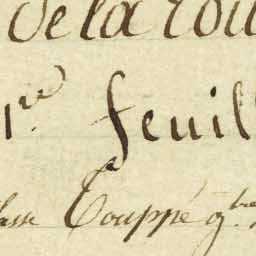 de la rou
1re. feuil
lasse Couppé 9bre